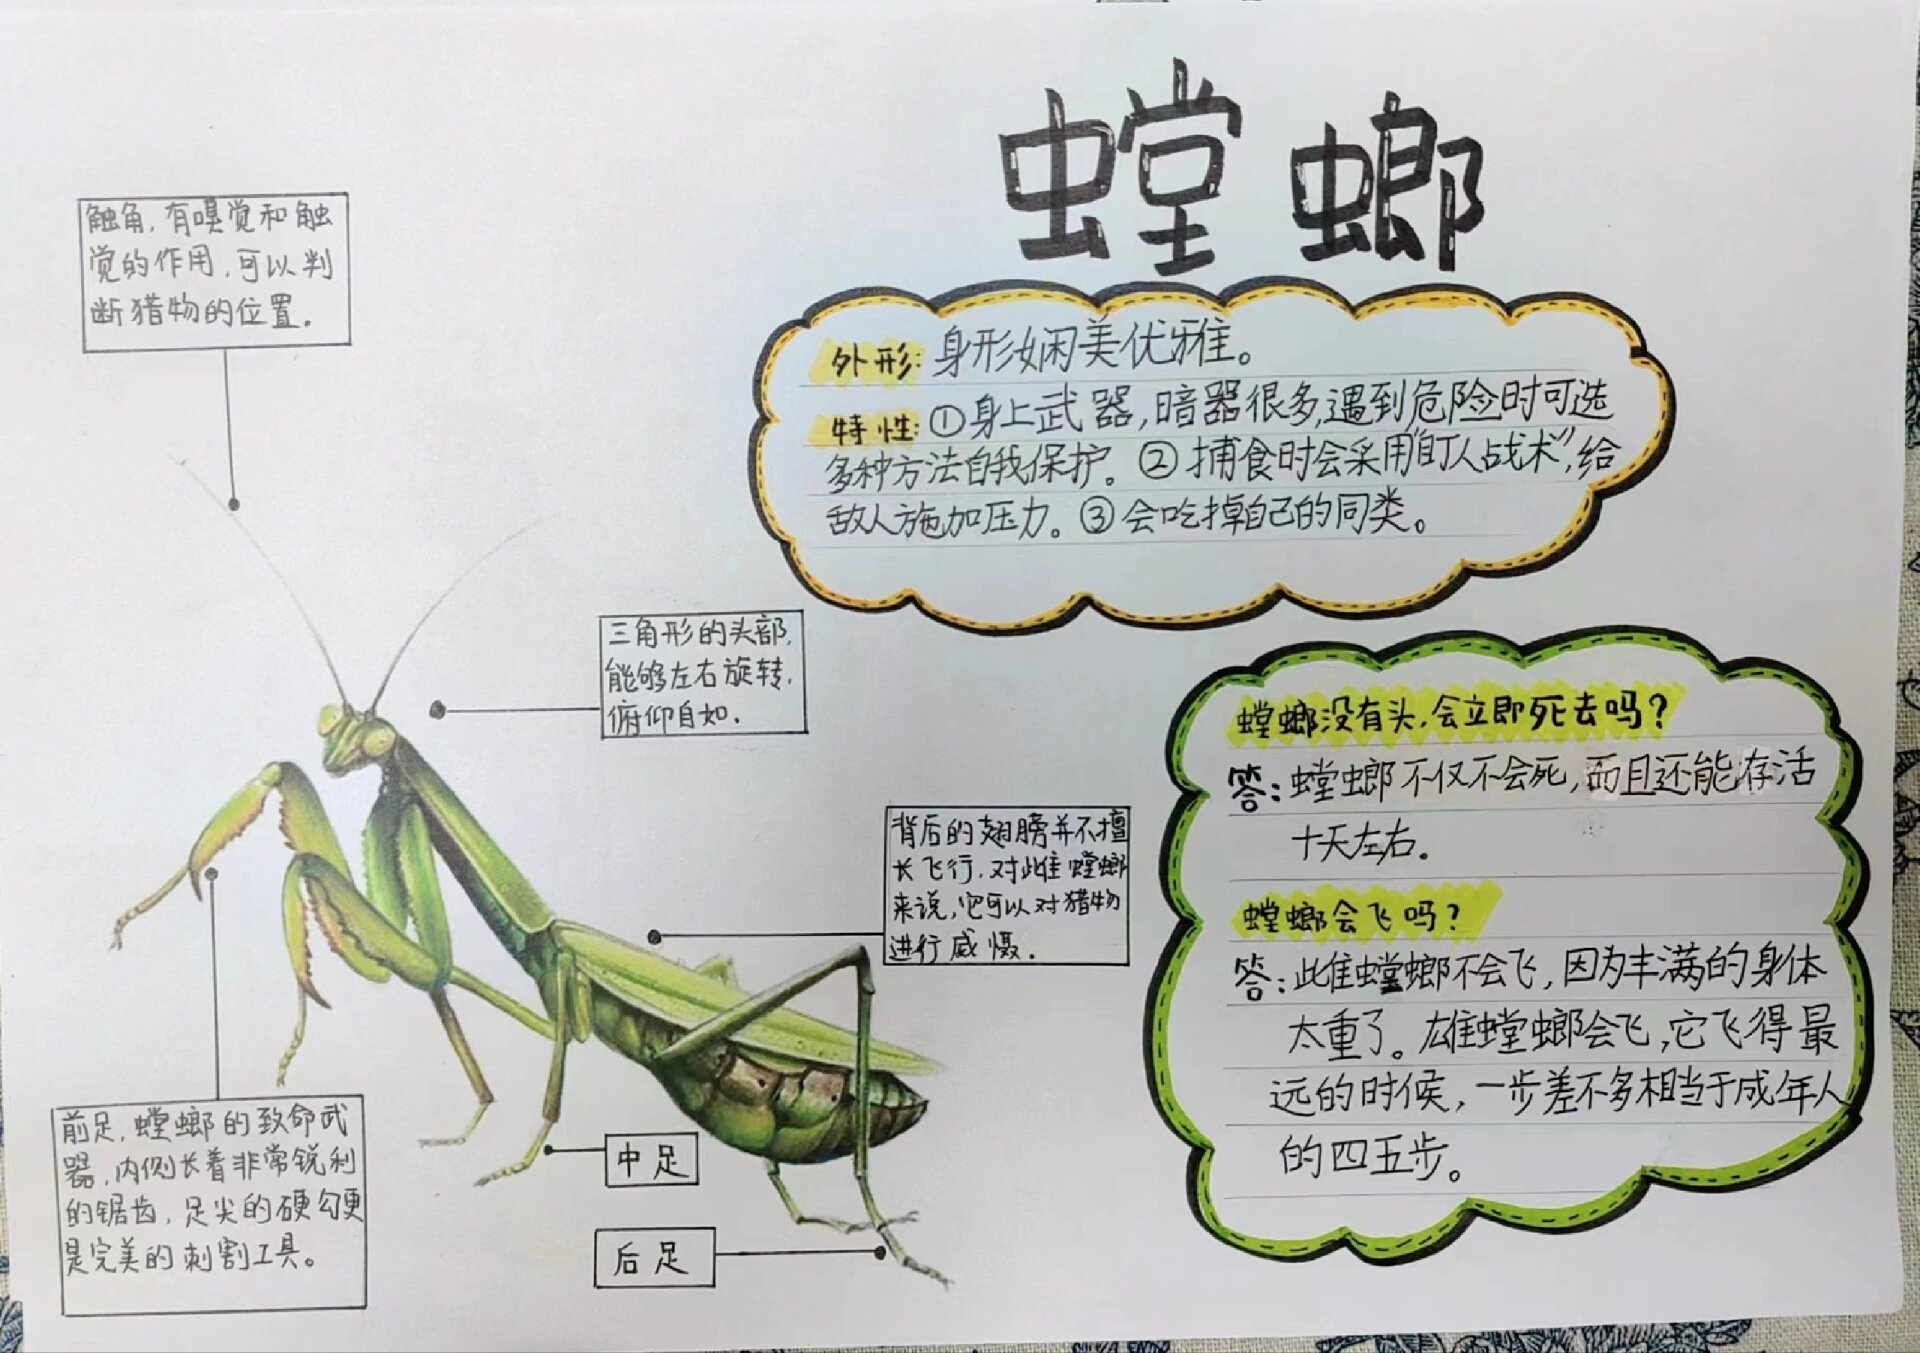 螳螂
触角,有嗅觉和触
觉的作用,可以判
断猎物的位置。
外形:身形娴美优雅。
特性:①身上武器,暗器很多,遇到危险时可选
多种方法自我保护。②捕食时会采用“盯人战术”,给
敌人施加压力。③会吃掉自己的同类。
三角形的头部,
能够左右旋转,
俯仰自如.
螳螂没有头,会立即死去吗?
答:螳螂不仅不会死,而且还能存活
十天左右。
螳螂会飞吗?
答:雌螳螂不会飞,因为丰满的身体
太重了。雄螳螂会飞,它飞得最
远的时候,一步差不多相当于成年人
的四五步。
背后的翅膀并不擅
长飞行,对雌螳螂
来说,它可以对猎物
进行威慑.
前足,螳螂的致命武
器,内侧长着非常锐利
的锯齿,足尖的硬勾更
是完美的刺割工具。
中足
后足